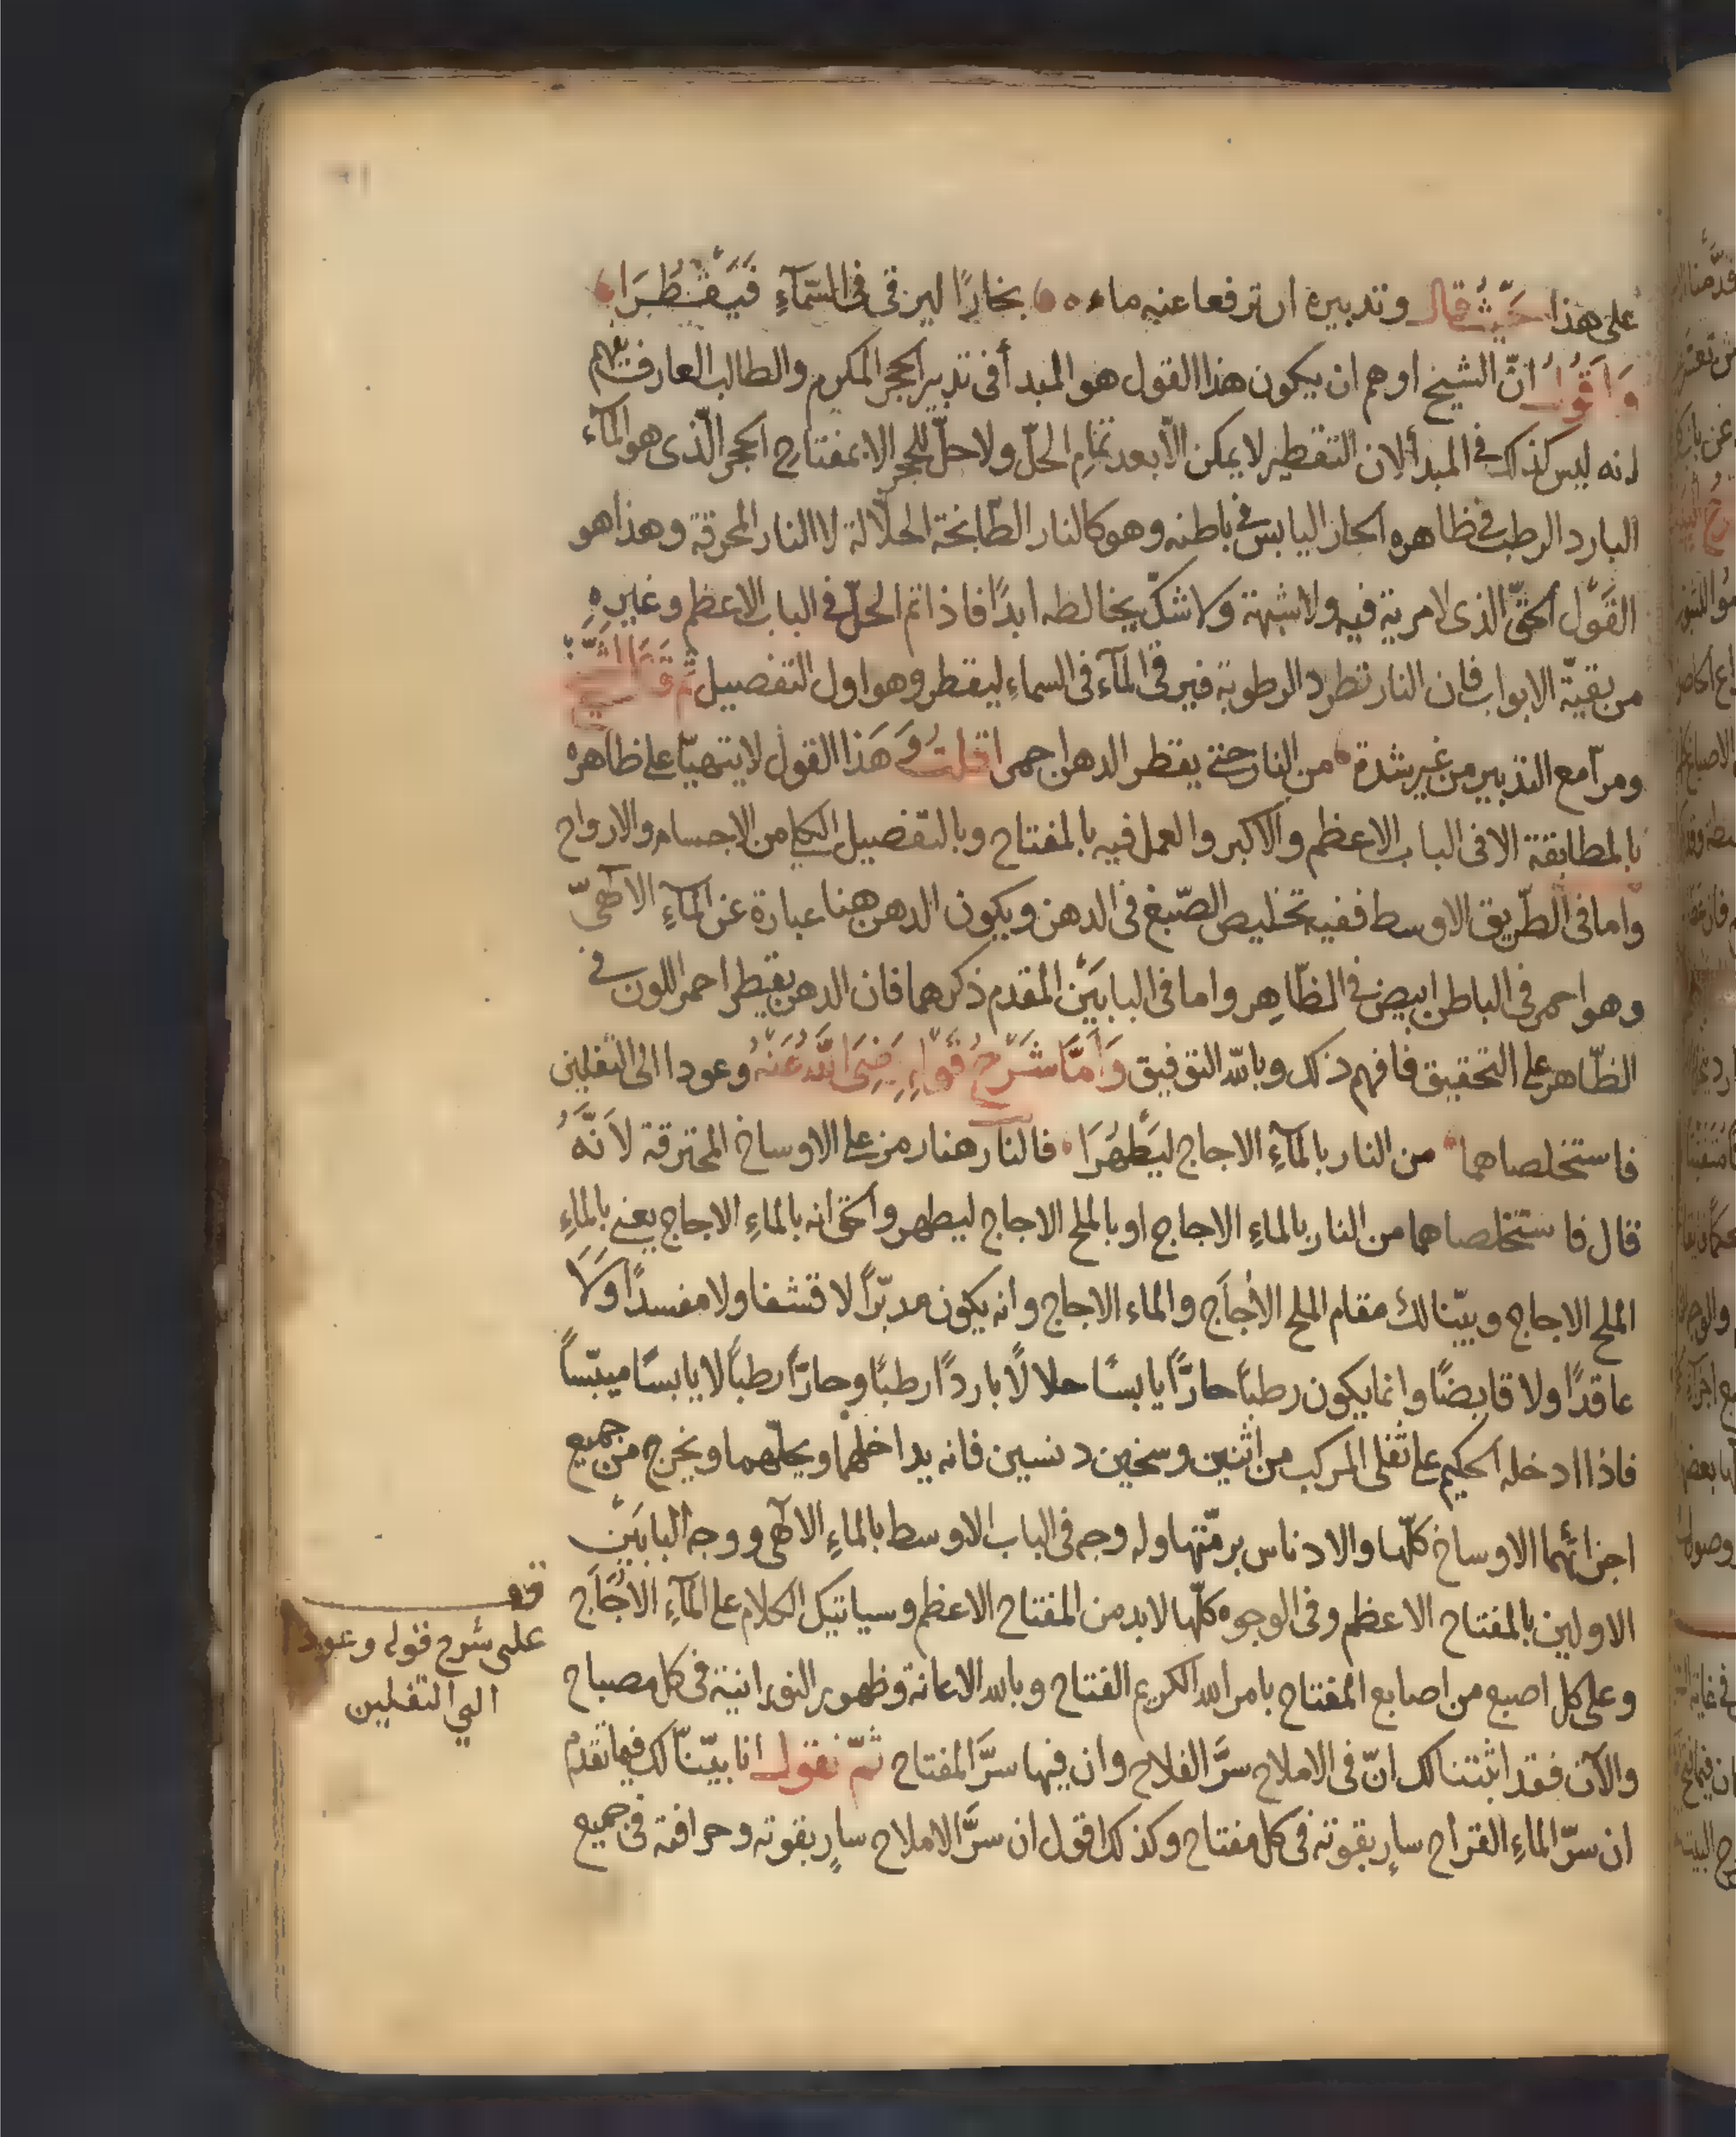 على هذا حيث قال وتدبيره ان ترفعا عنه ماءه بخارًا ليرقى فى السّمآءِ فَيَقْطُرَا
وَاَقُولُ انّ الشيخ اوهم ان يكون هذا القول هو المبدأ فى تدبير الحجر المكرم والطالب العارف يفهم
انه ليس كذلك فى المبدأ لان التقطير لا يمكن الّا بعد تمامِ الحلّ ولا حلّ للحجر الا بمفتاح الحجر الّذى هو المآء
البارد الرطب فى ظاهره الحار اليابس فى باطنه وهو كالنار الطّابخة الحلّالة لا النار المحرقة وهذا هو
القَوْل الحقّ الذى لا مرية فيه ولا شبهة ولا شكّ يخالطه ابدًا فاذا تم الحلّ فى الباب الاعظم وغيرِهِ
من بقيّة الابواب فان النار تطرد الرطوبة فيرقى المآء فى السماء ليقطر وهو اول التفصيل ثم قَالَ الشَّيخ
ومرا مع التدبير من غير شدة من النار حتى يقطر الدهن احمرا قلت وَهَذا القول لا يتهيّا على ظاهره
بالمطابقة الا فى الباب الاعظم والاكبر والعمل فيه بالمفتاح وبالتفصيل الكامن الاجسام والارواح
واما فى الطّريق الاوسط ففيه تخليص الصّبغ فى الدهن ويكون الدهن هنا عبارة عن المآءِ الالٰهىّ
وهو احمر فى الباطن ابيض فى الظّاهِر واما فى البابَيْن المقدم ذكرهما فان الدهن يقطر احمر اللون فى
الظّاهر على التحقيق فافهم ذلك وبالله التوفيق وَاَمَّا شَرْحُ قَوْلِهِ رَضِىَ اللّٰهُ عَنْهُ وعودا الى الثفلين
فاستخلصاهما من النار بالمآءِ الاجاج ليَطْهُرَا فالنار هنا رمز على الاوساخ المحترقة لاَنَّهُ
قال فاستخلصاهما من النار بالماءِ الاجاج او بالملح الاجاج ليطهر والحق انه بالماءِ الاجاج يعنى بالماءِ
الملح الاجاج وبيّنا لك مقام الملح الاُجَاج والماء الاجاج وانه يكون مدبّرًا لا قشفا ولا مفسدًا ولا
عاقدًا ولا قابضًا وانما يكون رطبًا حارًّا يابسًا حلالًا باردًا رطبًا وحارًّا رطبًا لا يابسًا ميبّسًا
فاذا ادخله الحكيم على ثفلى المركب من اثنين وسخين دنسين فانه يداخلهما ويحلّهما ويخرج من جميع
اجزائهما الاوساخ كلّها والادناس برمّتها وله وجه فى الباب الاوسط بالماءِ الالٰهى ووجه البابَيْن
الاولين بالمفتاح الاعظم وفى الوجوه كلّها لابد من المفتاح الاعظم وسياتيك الكلام على المآءِ الاُجَاج
وعلى كل اصبع من اصابع المفتاح بامر الله الكريم الفتاح وبالله الاعانة وظهور النورانية فى كل مصباح
والآن فقد اثبتنا لك انّ فى الاملاح سرَّ الفلاح وان فيها سرَّ المفتاح ثمّ نقول انا بيّنّا لك فيما تقدم
ان سرّ الماءِ القراح سارٍ بقوته فى كل مفتاح وكذلك اقول ان سرَّ الاملاح سارٍ بقوته وحرافته فى جميع
قف
على شرح قوله وعودا
الي الثفلين